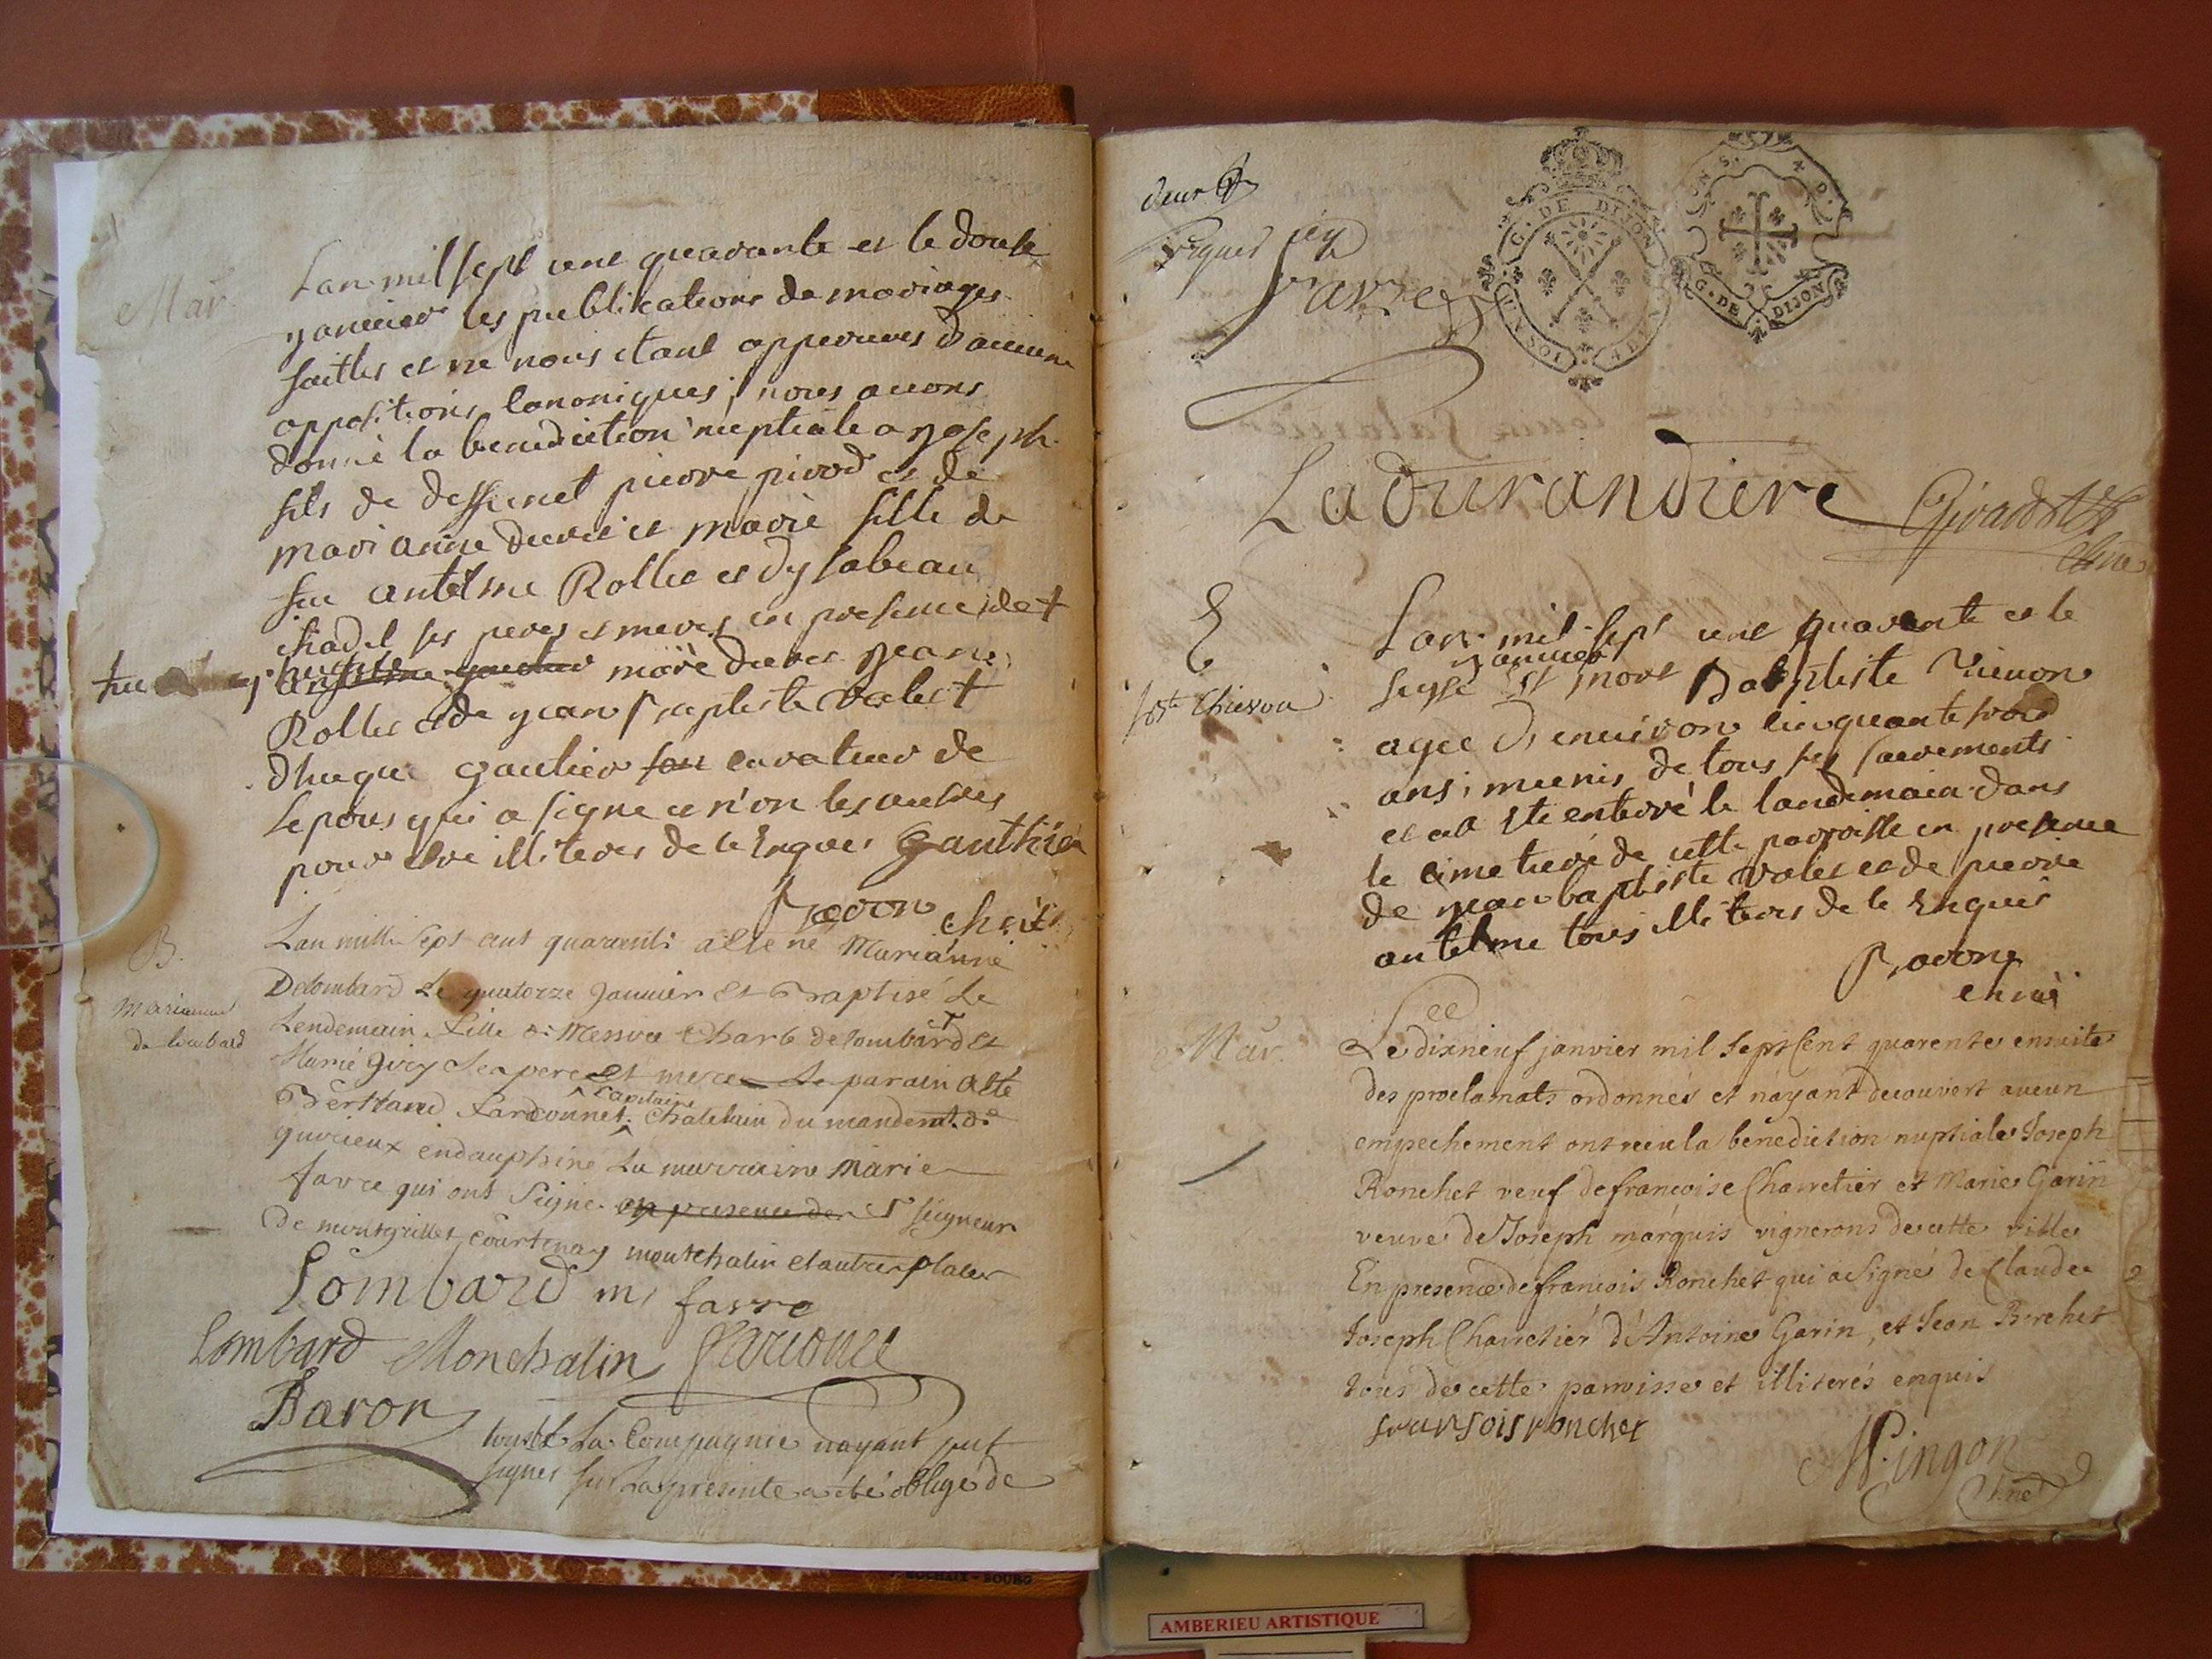 Mar.
Lan mil sept cent quarante et le douse
yanvier les publications de mariages
faittes et ne nous etant apperceues d'aucune
oppositions canoniques; nous avons
donné la benediction nuptiale a yoseph
fils de deffunct pierre pivod et de
mari anne et marie fille de
feu antelme Rollet et dysabeau
ses peres et meres en presence de
marc yean
Rollet et de yean baptiste valet
dhugue gautier son curateur de
lepous qui a signe et n'on les autres
pour etre illiteres de ce Enquis Gauthier
Bovon
B.
Marianne
de lombard
Lan mille sept cent quarante a este né Marianne
Delombard Le quatorze Janvier Et Baptisé Le
Lendemain fille de Messire Charle de lombard Et
Marie givry Ses pere et mere Le parain a été
Bertrand capitaine Chatelain du mandemt. de
quirieux en dauphiné La marraine Marie
favre qui ont Signe en presence de Seigneur
De montgrillet courtenay montchalin et autres places
Lombard m favre
Lombard Monchalin
Baron
toutte La Compagnie n'ayant put
signer sur La presente a eté obligé de
deux
favre
G. DE DIJON
UN SOL
G. DE DIJON
Ladurandiere
E
Lan mil sept cent quarante et le
sezse yanvier Est mort Baptiste
agee D'environ cinquante trois
ans; munis de tous ses sacrements
et a Ete enterré le landemain dans
le cimetiere de cette parroisse en presence
de yean baptiste valet et de pierre
antelme tous illiteres de ce Enquis
Bovon
Mar.
Le dixneuf janvier mil sept Cent quarente ensuite
des proclamats ordonnés et n'ayant decouvert aucun
empechement ont recu la benediction nuptiale Joseph
Ronchet veuf de francoise Charretier et Marie Garin
veuve de Joseph marquis vignerons de cette ville
En presence de francois Ronchet qui a Signé de Claude
Joseph Charretier d'Antoine Garin, et Jean
tous de cette parroisse et illiterés enquis
fransois roncher
Pingon
AMBERIEU ARTISTIQUE